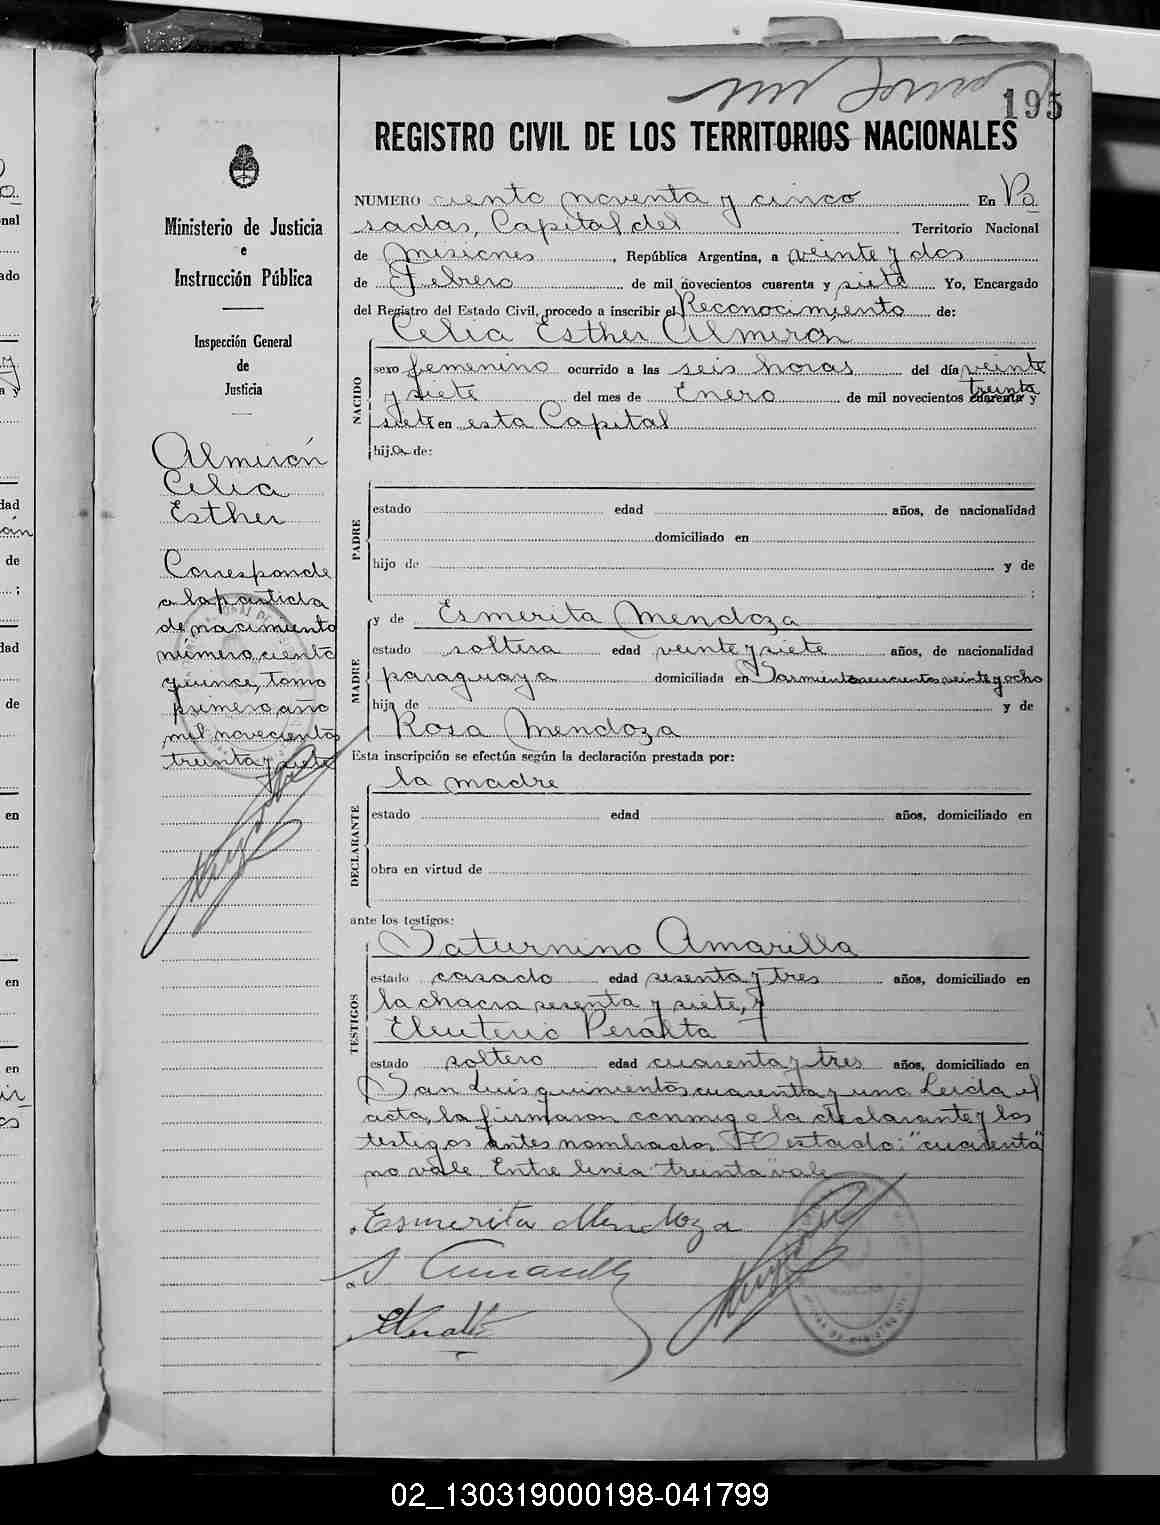 195
REGISTRO CIVIL DE LOS TERRITORIOS NACIONALES
Ministerio de Justicia
e
Instrucción Pública
Inspección General
de
Justicia
Almirón
Celia
Esther
Corresponde
a la partida
de nacimiento
número ciento
quince, tomo
primero, año
mil novecientos
treinta y siete
NUMERO ciento noventa y cinco En Po
sadas, Capital del Territorio Nacional
de Misiones, República Argentina, a veinte y dos
de Febrero de mil novecientos cuarenta y siete Yo, Encargado
del Registro del Estado Civil, procedo a inscribir el Reconocimiento de:
Celia Esther Almiron
NACIDO
sexo femenino ocurrido a las seis horas del día veinte
y siete del mes de Enero de mil novecientos cuarenta y
treinta
siete en esta Capital
hija de:
PADRE
estado edad años, de nacionalidad
domiciliado en
hijo de y de
;
MADRE
y de Esmerita Mendoza
estado soltera edad veinte y siete años, de nacionalidad
paraguaya domiciliada en Sarmiento seiscientos veinte y ocho
hija de y de
Rosa Mendoza
Esta inscripción se efectúa según la declaración prestada por:
la madre
DECLARANTE
estado edad años, domiciliado en
obra en virtud de
ante los testigos:
TESTIGOS
Saturnino Amarilla
estado casado edad sesenta y tres años, domiciliado en
la chacra sesenta y siete, y
Eleuterio Peralta
estado soltero edad cuarenta y tres años, domiciliado en
San Luis quinientos cuarenta y uno Leida el
acta, la firmaron conmigo la declarante y los
testigos antes nombrados. Testado: "cuarenta"
no vale Entre linea "treinta" vale
Esmerita Mendoza
S Amarilla
02_130319000198-041799